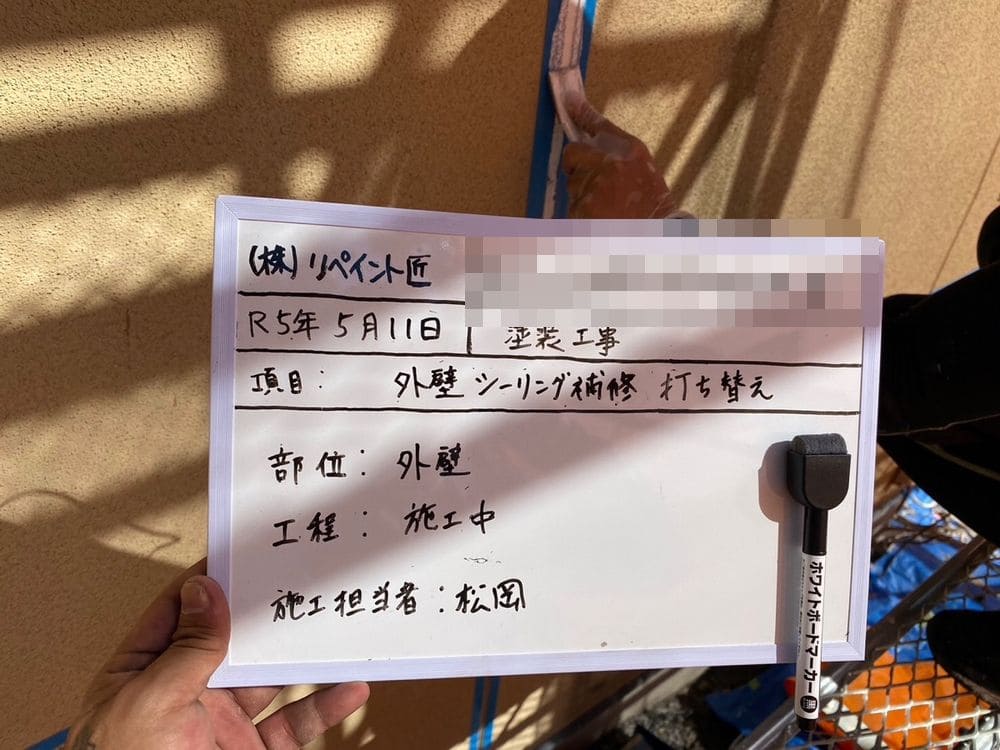 (株)リペイント匠
R5年 5月11日
塗装工事
項目： 外壁 シーリング補修 打ち替え
部位： 外壁
工程： 施工中
施工担当者：松岡
ホワイトボードマーカー 黒